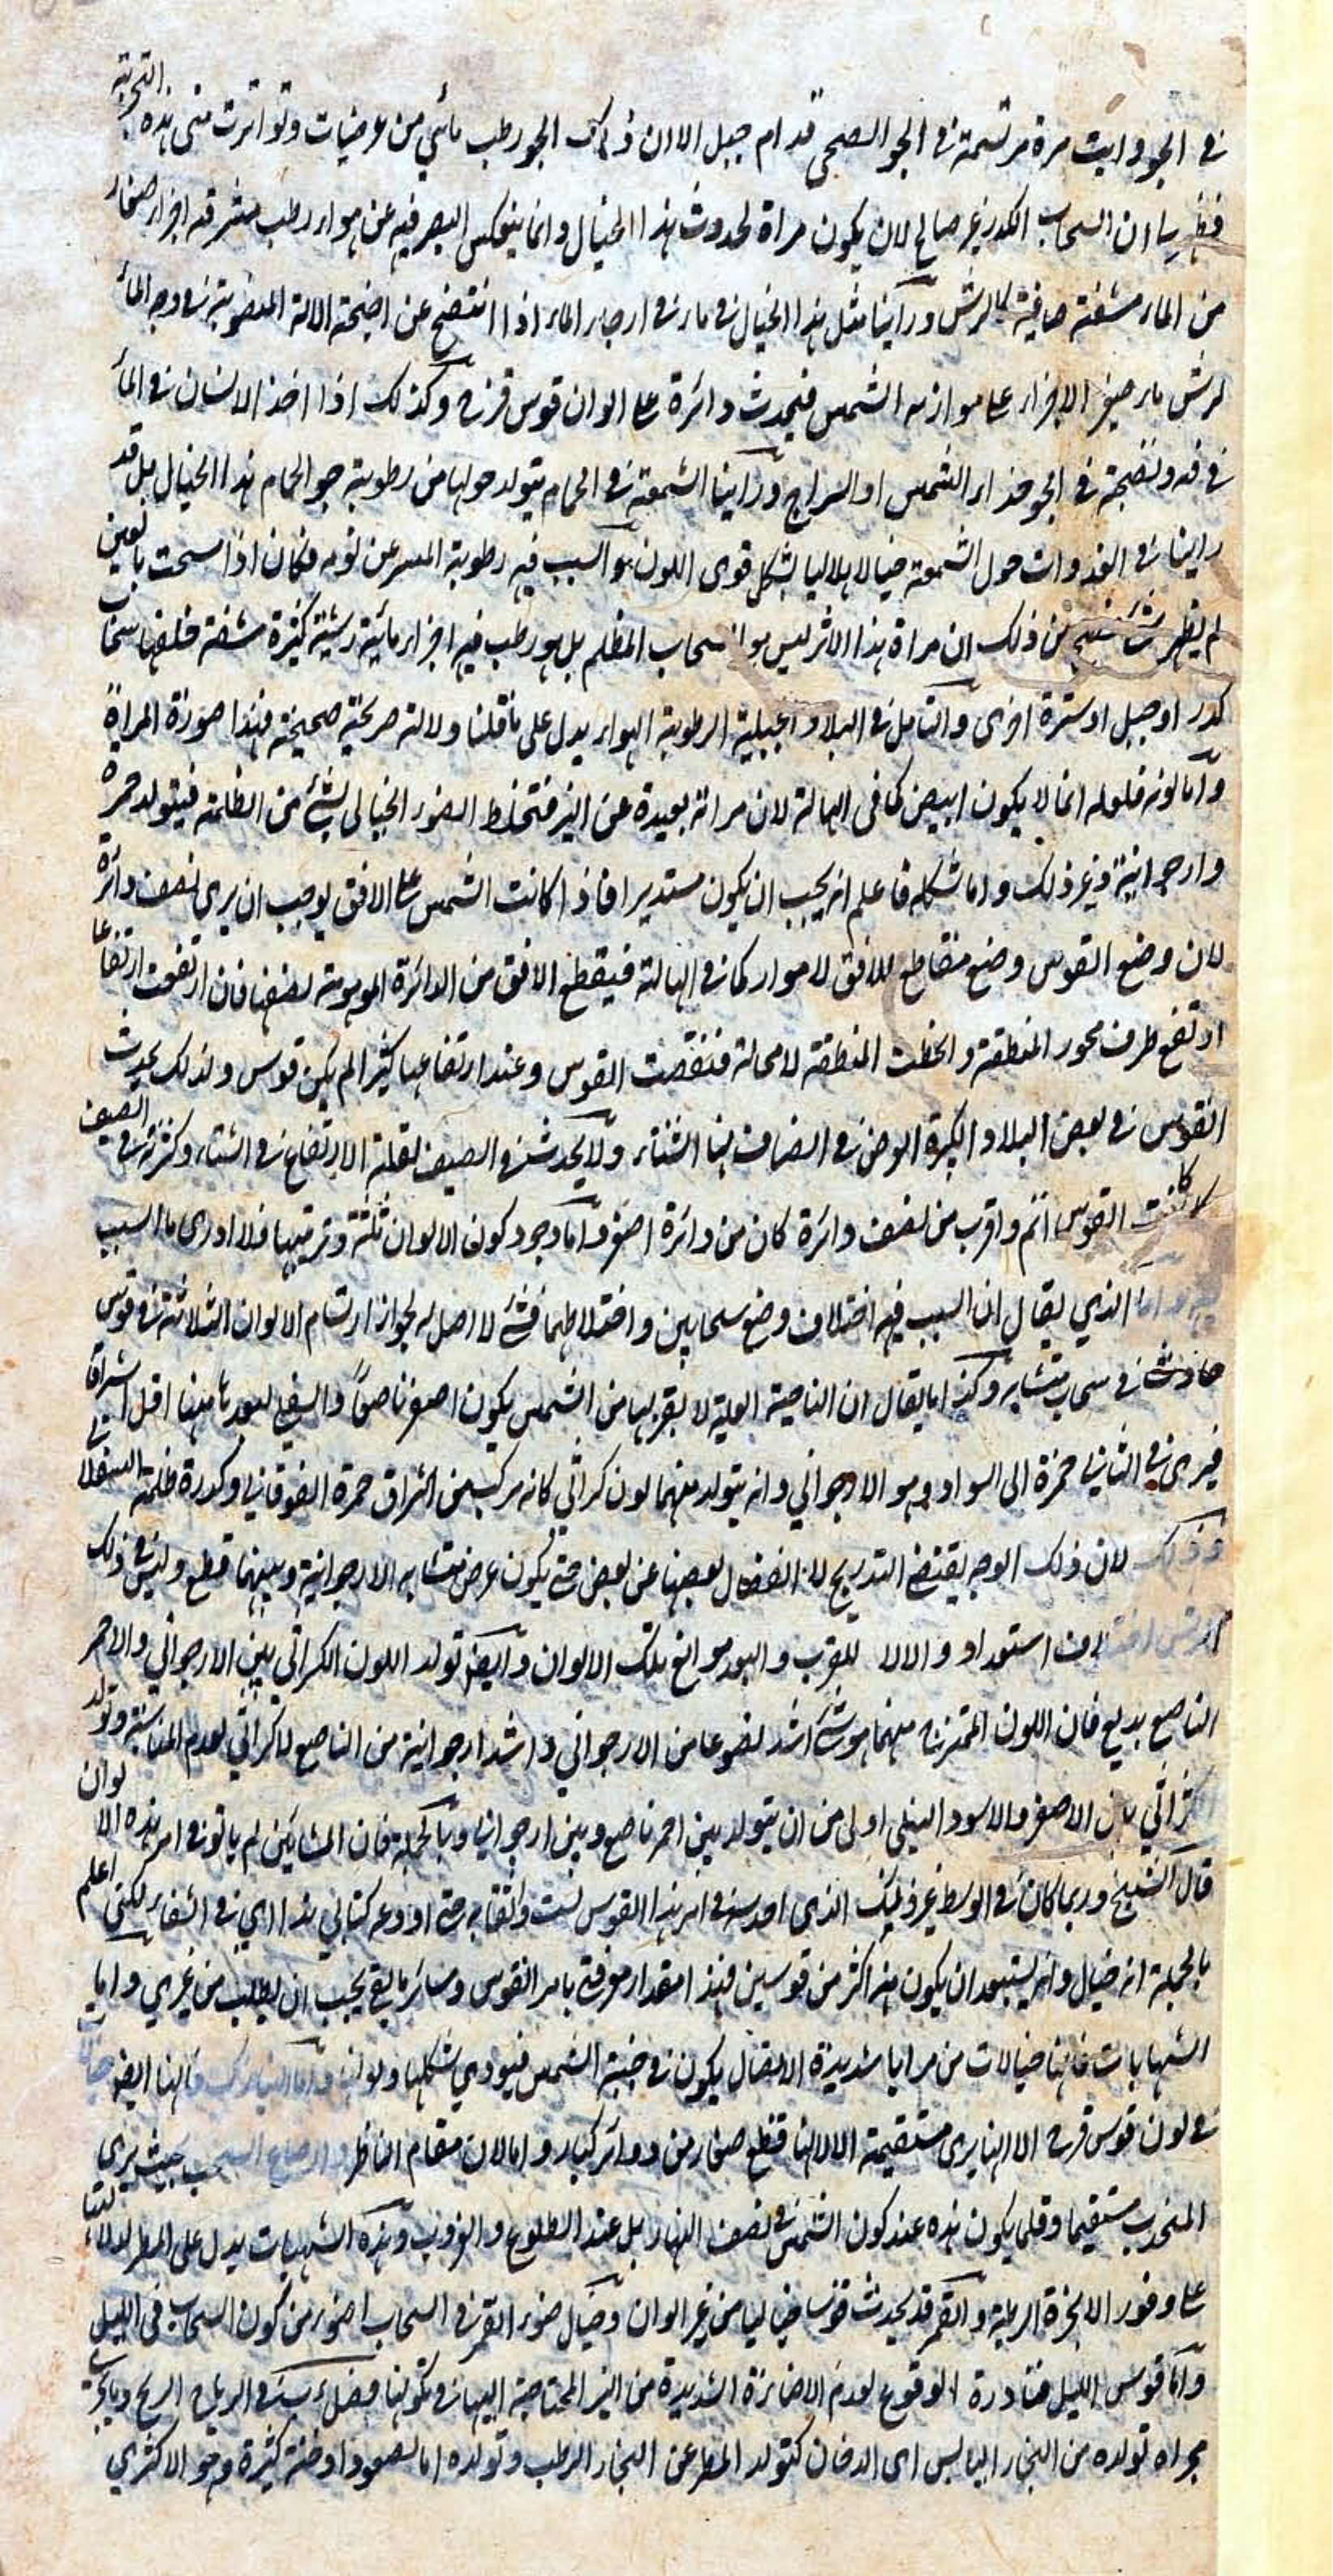 في الجو ورايت مرة مرتسمة في الجو الصحي قدام جبل الا ان ذلك الجو رطب مائي من عرضيات وتواترت مني هذه التجربة
فظهر لنا ان السحاب الكدر غير صالح لان يكون مراة لحدوث هذا الخيال وانما ينعكس البصر فيه عن هواء رطب منتشر فيه اجزاء صغار
من الماء مشفة صافية كالرش وراينا مثل هذا الخيال في ماء في ارجاء الماء اذا انتضح عن اجنحة الالة المنصوبة في وجه الماء
لرش ماء صغير الاجزاء على موازنة الشمس فيحدث دائرة على الوان قوس قزح وكذلك اذا اخذ الانسان في الماء
في فمه ونضحه في الجو حذاء الشمس او السراج وراينا الشمعة في الحمام يتولد حولها من رطوبة جو الحمام هذا الخيال بل قد
راينا في الغدوات حول الشمعة خيالا هلاليا بشكل قوي اللون هو السبب فيه رطوبة العين عن نومه فكان اذا مسحت بالعين
لم يظهر شئ فتبين من ذلك ان مراة هذا الاثر ليس هو السحاب المظلم بل هو رطب فيه اجزاء مائية رشية كثيرة مشفة خلفها سحاب
كدر او جبل او سترة اخرى والتامل في البلاد الجبلية الرطوبة الهواء يدل على ما قلنا دلالة صريحة صحيحة فهذا صورة المراة
واما لونه فلعله انما لا يكون ابيض كما في الهالة لان مراته بعيدة عن النير فتختلط الضوء الخيالي بشئ من الظلمة فيتولد حمرة
وارجوانية وغير ذلك واما شكله فاعلم انه يجب ان يكون مستديرا فاذا كانت الشمس على الافق يوجب ان يرى نصف دائرة
لان وضع القوس وضع مقاطع للافق لا مواز كما في الهالة فيقطع الافق من الدائرة الموهومة نصفها فان ارتفعت ارتفاعا
ارتفع طرف محور المنطقة وانحطت المنطقة لا محالة فنقصت القوس وعند ارتفاعها كثيرا لم يكن قوس ولذلك يحدث
القوس في بعض البلاد الكبيرة العرض في انصاف نهار الشتاء ولا يحدث في الصيف لقلة الارتفاع في الشتاء وكثرته في الصيف
كانت القوس اتم واقرب من نصف دائرة كان من دائرة اصغر واما وجود كون الالوان ثلثة وترتيبها فلا ادري ما السبب
فيه واما الذي يقال ان السبب فيه اختلاف وضع سحابين واختلاطهما فشئ لا اصل له لجواز ارتسام الالوان الثلاثة في قوس
حادث في سحاب متشابه وكذا ما يقال ان الناحية العلية لقربها من الشمس يكون احمر ناصعا والسفلي لبعدها منها اقل اشراقا
فيرى في الثاني حمرة الى السواد وهو الارجواني وانه يتولد منهما لون كراثي كانه مركب من اشراق حمرة الفوقاني وكدرة ظلمة السفلاني
وذلك لان ذلك الوجه يقتضي التدريج لا انفصال بعضها عن بعض حتى يكون عرض متشابه الارجوانية وبينهما قطع وليس في ذلك
الرش اختلاف استعداد والا لا للقرب والبعد مواقع تلك الالوان وايضا تولد اللون الكراثي بين الارجواني والاحمر
الناصع بديع فان اللون الممتزج منهما هو شئ اشد نصوعا من الارجواني واشد ارجوانية من الناصع لا كراثي لعدم المناسبة وتولد
الكراثي بين الاصفر والاسود النيلي اولى من ان يتولد بين احمر ناصع وبين ارجواني وبالجملة فان المشائين لم ياتوا في امر هذه الالوان
قال الشيخ وربما كان في الوسط غير ذينك الذي احدسه في امر هذا القوس لست واثقا به حتى اودعه كتابي هذا اي في الشفاء لكني اعلم
بالجملة انه خيال وانه يستبعد ان يكون منه اكثر من قوسين فهذا مقدار معرفتي بامر القوس وسائر ما بقي يجب ان يطلب من غيري واما
الشهابات فانها خيالات من مرايا شديدة الاتصال يكون في جنبة الشمس فيؤدي شكلها ولونها واما النيازك فانها ايضا خيالات
في لون قوس قزح الا انها يرى مستقيمة الا لانها قطع صغار من دوائر كبار واما لان مقام الناظر واوضاع السحب بحيث يرى
المنحدب مستقيما وقلما يكون هذه عند كون الشمس في نصف النهار بل عند الطلوع والغروب وهذه الشهبات يدل على المطر لدلالتها
على وفور الابخرة الرطبة والقمر قد يحدث قوسا خياليا من غير الوان وخيال ضوء القمر في السحاب اضوء من كون السحاب في الليل
واما قوس الليل فنادرة الوقوع لعدم الاضاءة الشديدة من النير المحتاجة اليها في تكونها فصل في سبب الريح الريح وما يجري
مجراه تولده من البخار اليابس اي الدخان كتولد المطر عن البخار الرطب وتولده اما لصعود ادخنة كثيرة وهو الاكثري